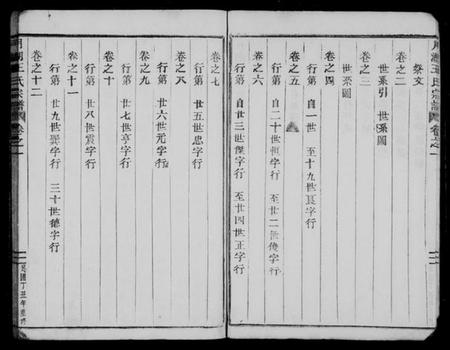 月湖王氏宗譜 卷之一
祭文
卷之二
世系引 世系圖
卷之三
世系圖
卷之四
行第 自一世 至十九世良字行
卷之五
行第 自二十世恒字行 至廿二世俊字行
卷之六
行第 自廿三世傑字行 至廿四世正字行
卷之七
行第 廿五世忠字行
卷之八
行第 廿六世元字行
卷之九
行第 廿七世亨字行
卷之十
行第 廿八世震字行
卷之十一
行第 廿九世巽字行 三十世德字行
卷之十二
月湖王氏宗譜 卷之一
民國丁丑年重修